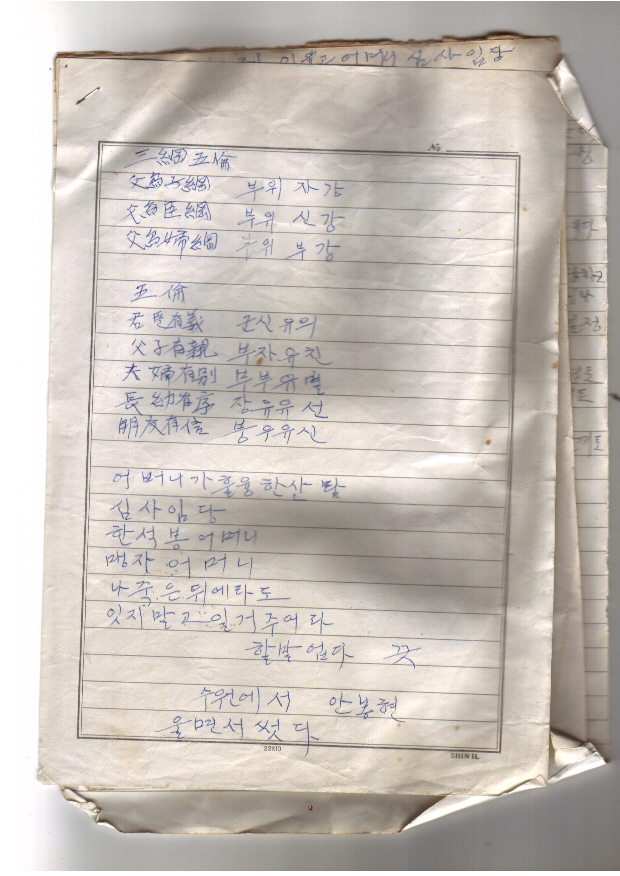 이 율 곡 어머니 심 사 임 당
No
三綱五倫
父爲子綱 부위 자강
父爲臣綱 부위 신강
父爲婦綱 부위 부강
五倫
君臣有義 군신유의
父子有親 부자유친
夫婦有別 부부유별
長幼有序 장유유선
朋友有信 붕우유신
어머니가 훌융한산람
심사임당
한석봉어머니
맹자 어머니
나죽은뒤에라도
잇지말고 일거주어라
할말업다 끗
수원에서 안봉현
울면서썻다.
22X13
SHIN IL